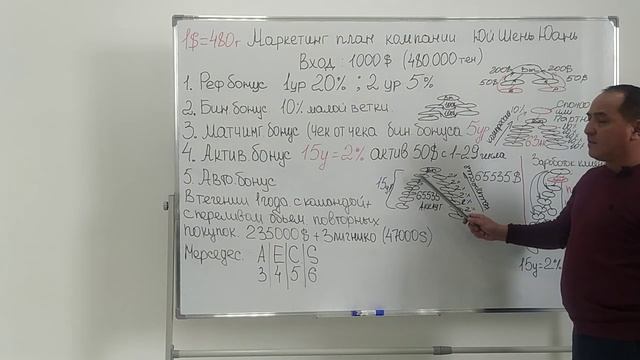 1$=480т Маркетинг план компании Юй Шень Юань
Вход: 1000$ (480 000 тен)
1. Реф бонус 1ур 20% ; 2 ур 5%
2. Бин бонус 10% малой ветки.
3. Матчинг бонус (чек от чека бин бонуса 5ур
4. Актив. бонус 15у=2% актив 50$ с 1-29 числа
5. Авто бонус
В течении 1 года с командой +
с переливам объем повторных
покупок. 235000$ + 3 лигнико (47000$)
Мерседес. A E C S
3 4 5 6
200$ 200$
50$ 50$
10%
15ур
65535
Аккаут
65535$
Заработок
15у=2%